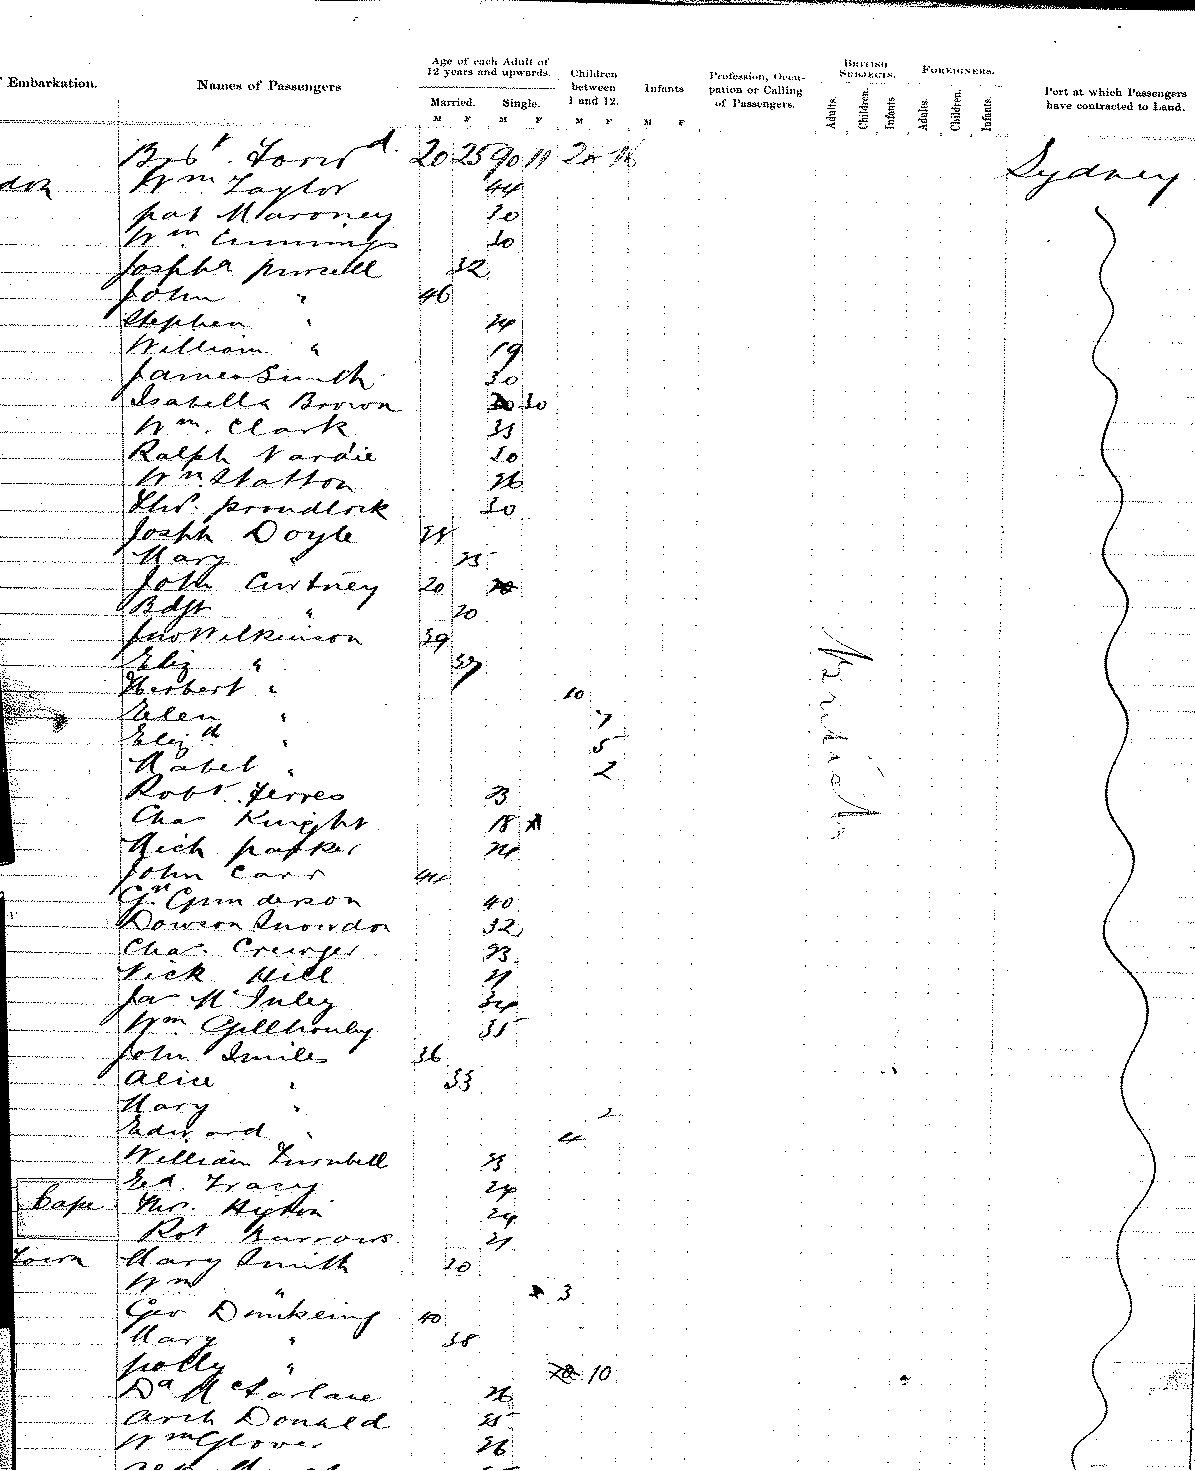 Embarkation. Names of Passengers Age of each Adult of 12 years and upwards. Children between 1 and 12. Infants Profession, Occupation or Calling of Passengers. BRITISH SUBJECTS. FOREIGNERS. Port at which Passengers have contracted to Land.
Married. Single. Adults. Children. Infants Adults. Children. Infants.
M F M F M F M F
Bro't Forw'd. 20 25 90 11 20 16 Sydney
don Wm Taylor 44
pat Maroney 30
Wm Cummings 30
Josepha pursell 32
John " 46
Stephen " 24
William " 19
James Smith 30
Isabella Brown 30
Wm. Clark 35
Ralph Vardie 30
Wm Statton 26
Thos. proudlock 30
Josph Doyle 28
Mary " 25
John Curtney 20
Bdgt " 20
Jno Wilkinson 39
Eliz " 37
Herbert " 10
Elen " 7
Elizth " 5
Mabel " 2
British
Robt Ferres 23
Chas Knight 18
Rich parker 24
John Carr 44
Gst Gunderson 40
Dowson Snowdon 32
Chas. Crewger 23
Nick Hill 21
Jas McInley 34
Wm Gillhouly 35
John Smiles 36
Alice " 33
Mary " 2
Edward " 4
William Turnbell 23
Ed. Tracy 24
Cape Thos. 24
Rot Burrows 21
Town Mary Smith 20
Wm " 3
Geo Dunkeing 40
Mary " 38
polly " 10
Dd McFarlane 26
Arch Donald 25
Wm Glover 26